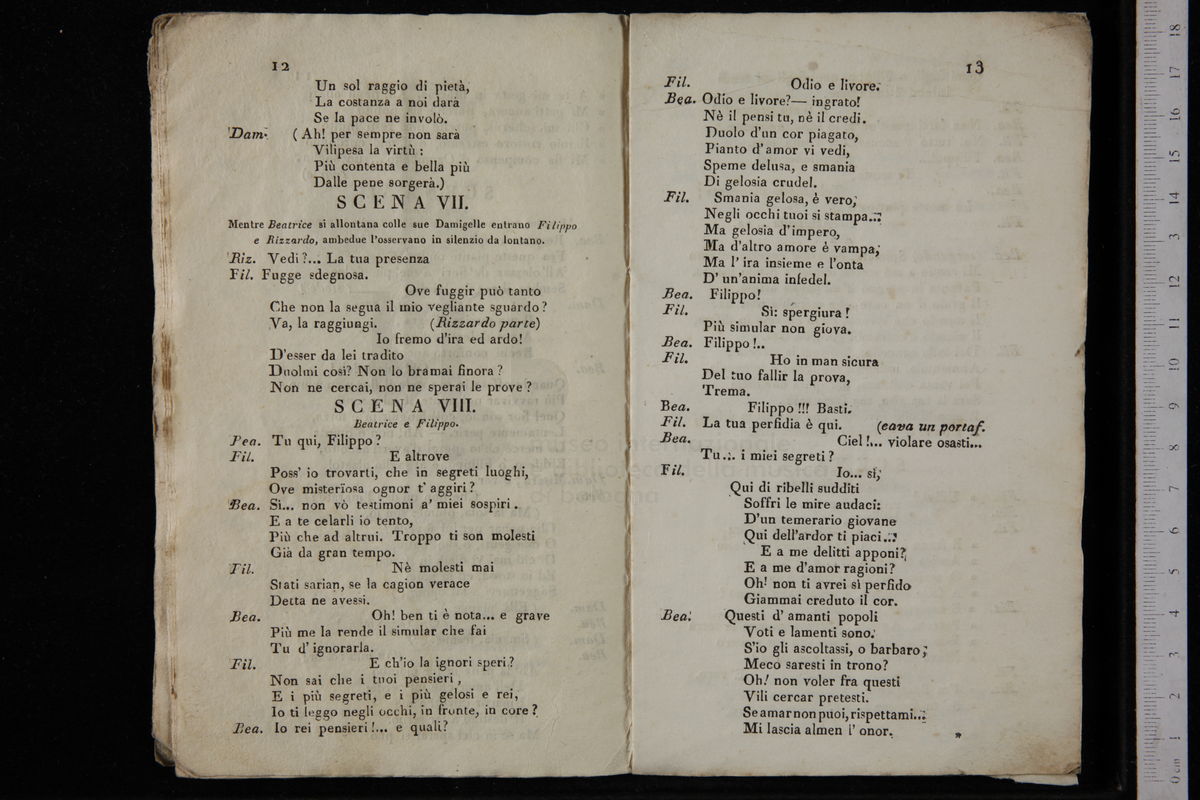 12
Un sol raggio di pietà,
La costanza a noi darà
Se la pace ne involò.
Dam. (Ah! per sempre non sarà
Vilipesa la virtù :
Più contenta e bella più
Dalle pene sorgerà.)
SCENA VII.
Mentre Beatrice si allontana colle sue Damigelle entrano Filippo
e Rizzardo, ambedue l'osservano in silenzio da lontano.
Riz. Vedi ?... La tua presenza
Fil. Fugge sdegnosa.
Ove fuggir può tanto
Che non la segua il mio vegliante sguardo ?
Va, la raggiungi. (Rizzardo parte)
Io fremo d'ira ed ardo!
D'esser da lei tradito
Duolmi così? Non lo bramai finora ?
Non ne cercai, non ne sperai le prove ?
SCENA VIII.
Beatrice e Filippo.
Bea. Tu qui, Filippo ?
Fil. E altrove
Poss' io trovarti, che in segreti luoghi,
Ove misterïosa ognor t' aggiri ?
Bea. Sì... non vò testimoni a' miei sospiri .
E a te celarli io tento,
Più che ad altrui. Troppo ti son molesti
Già da gran tempo.
Fil. Nè molesti mai
Stati sarian, se la cagion verace
Detta ne avessi.
Bea. Oh! ben ti è nota... e grave
Più me la rende il simular che fai
Tu d' ignorarla.
Fil. E ch'io la ignori speri ?
Non sai che i tuoi pensieri ,
E i più segreti, e i più gelosi e rei,
Io ti leggo negli occhi, in fronte, in core ?
Bea. Io rei pensieri !... e quali?
13
Fil. Odio e livore.
Bea. Odio e livore?— ingrato!
Nè il pensi tu, nè il credi.
Duolo d'un cor piagato,
Pianto d' amor vi vedi,
Speme delusa, e smania
Di gelosia crudel.
Fil. Smania gelosa, è vero;
Negli occhi tuoi si stampa...
Ma gelosia d' impero,
Ma d'altro amore è vampa;
Ma l' ira insieme e l'onta
D' un'anima infedel.
Bea. Filippo!
Fil. Sì: spergiura !
Più simular non giova.
Bea. Filippo !..
Fil. Ho in man sicura
Del tuo fallir la prova,
Trema.
Bea. Filippo !!! Basti.
Fil. La tua perfidia è qui. (eava un portaf.
Bea. Ciel !... violare osasti...
Tu... i miei segreti ?
Fil. Io... sì;
Qui di ribelli sudditi
Soffri le mire audaci:
D'un temerario giovane
Qui dell'ardor ti piaci...
E a me delitti apponi?
E a me d'amor ragioni?
Oh! non ti avrei sì perfido
Giammai creduto il cor.
Bea. Questi d' amanti popoli
Voti e lamenti sono.
S'io gli ascoltassi, o barbaro ;
Meco saresti in trono?
Oh! non voler fra questi
Vili cercar pretesti.
Se amar non puoi, rispettami...
Mi lascia almen l' onor.
*